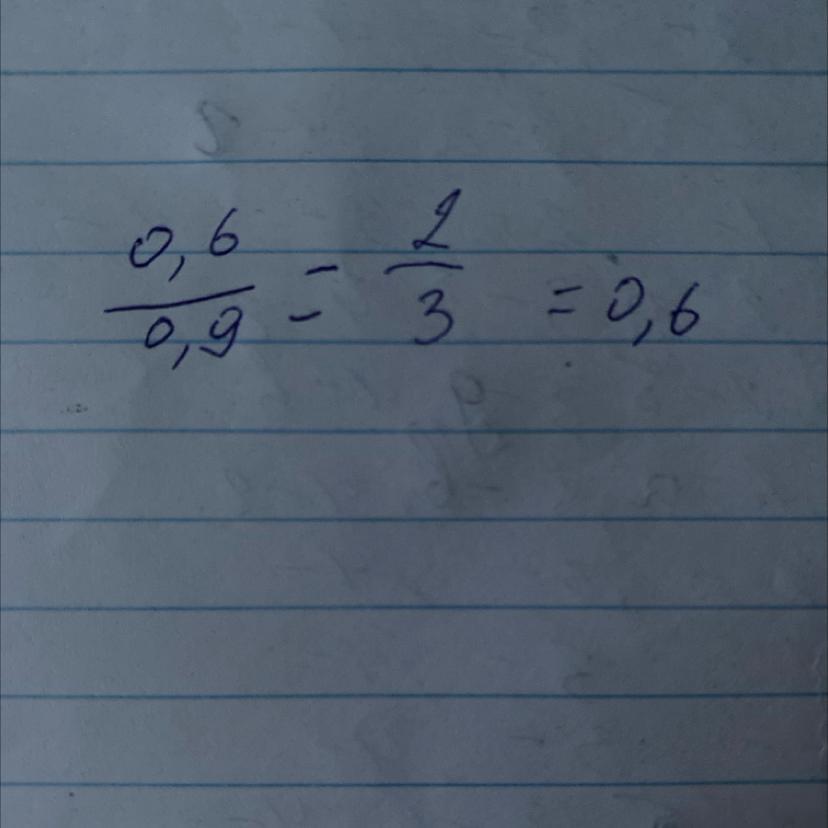 0,6/0,9 = 2/3 = 0,6